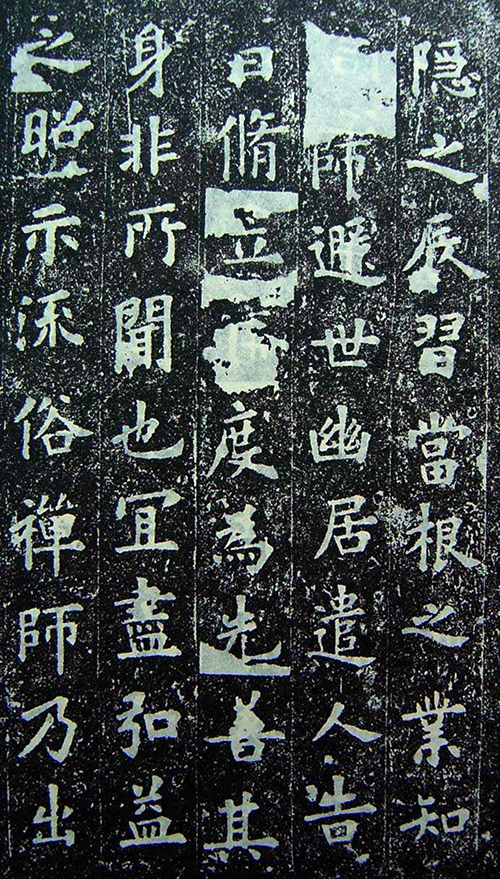 隱之辰習當根之業知
師遯世幽居遣人告
曰脩立度為先善其
身非所聞也冝盡弘益
之照示流俗禪師乃出